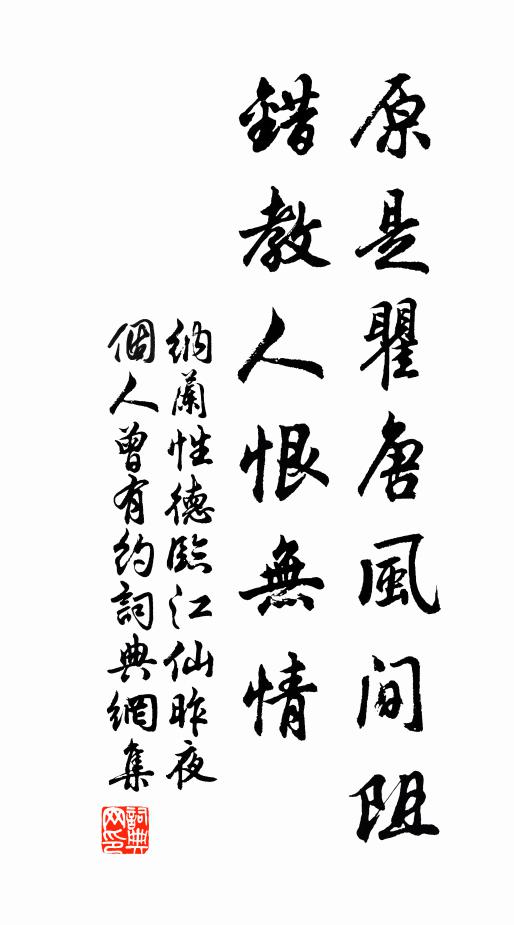 原是瞿唐風间阻
錯教人恨無情
納蘭性德臨江仙昨夜
個人曾有約詞典網集
詞典
网印